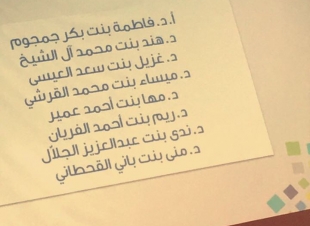 أ.د. فاطمة بنت بكر جمجوم
د. هند بنت محمد آل الشيخ
د. غزيل بنت سعد العيسى
د. ميساء بنت محمد القرشي
د. مها بنت أحمد عمير
د. ريم بنت أحمد الفريان
د. ندى بنت عبدالعزيز الجلال
د. منى بنت باني القحطاني